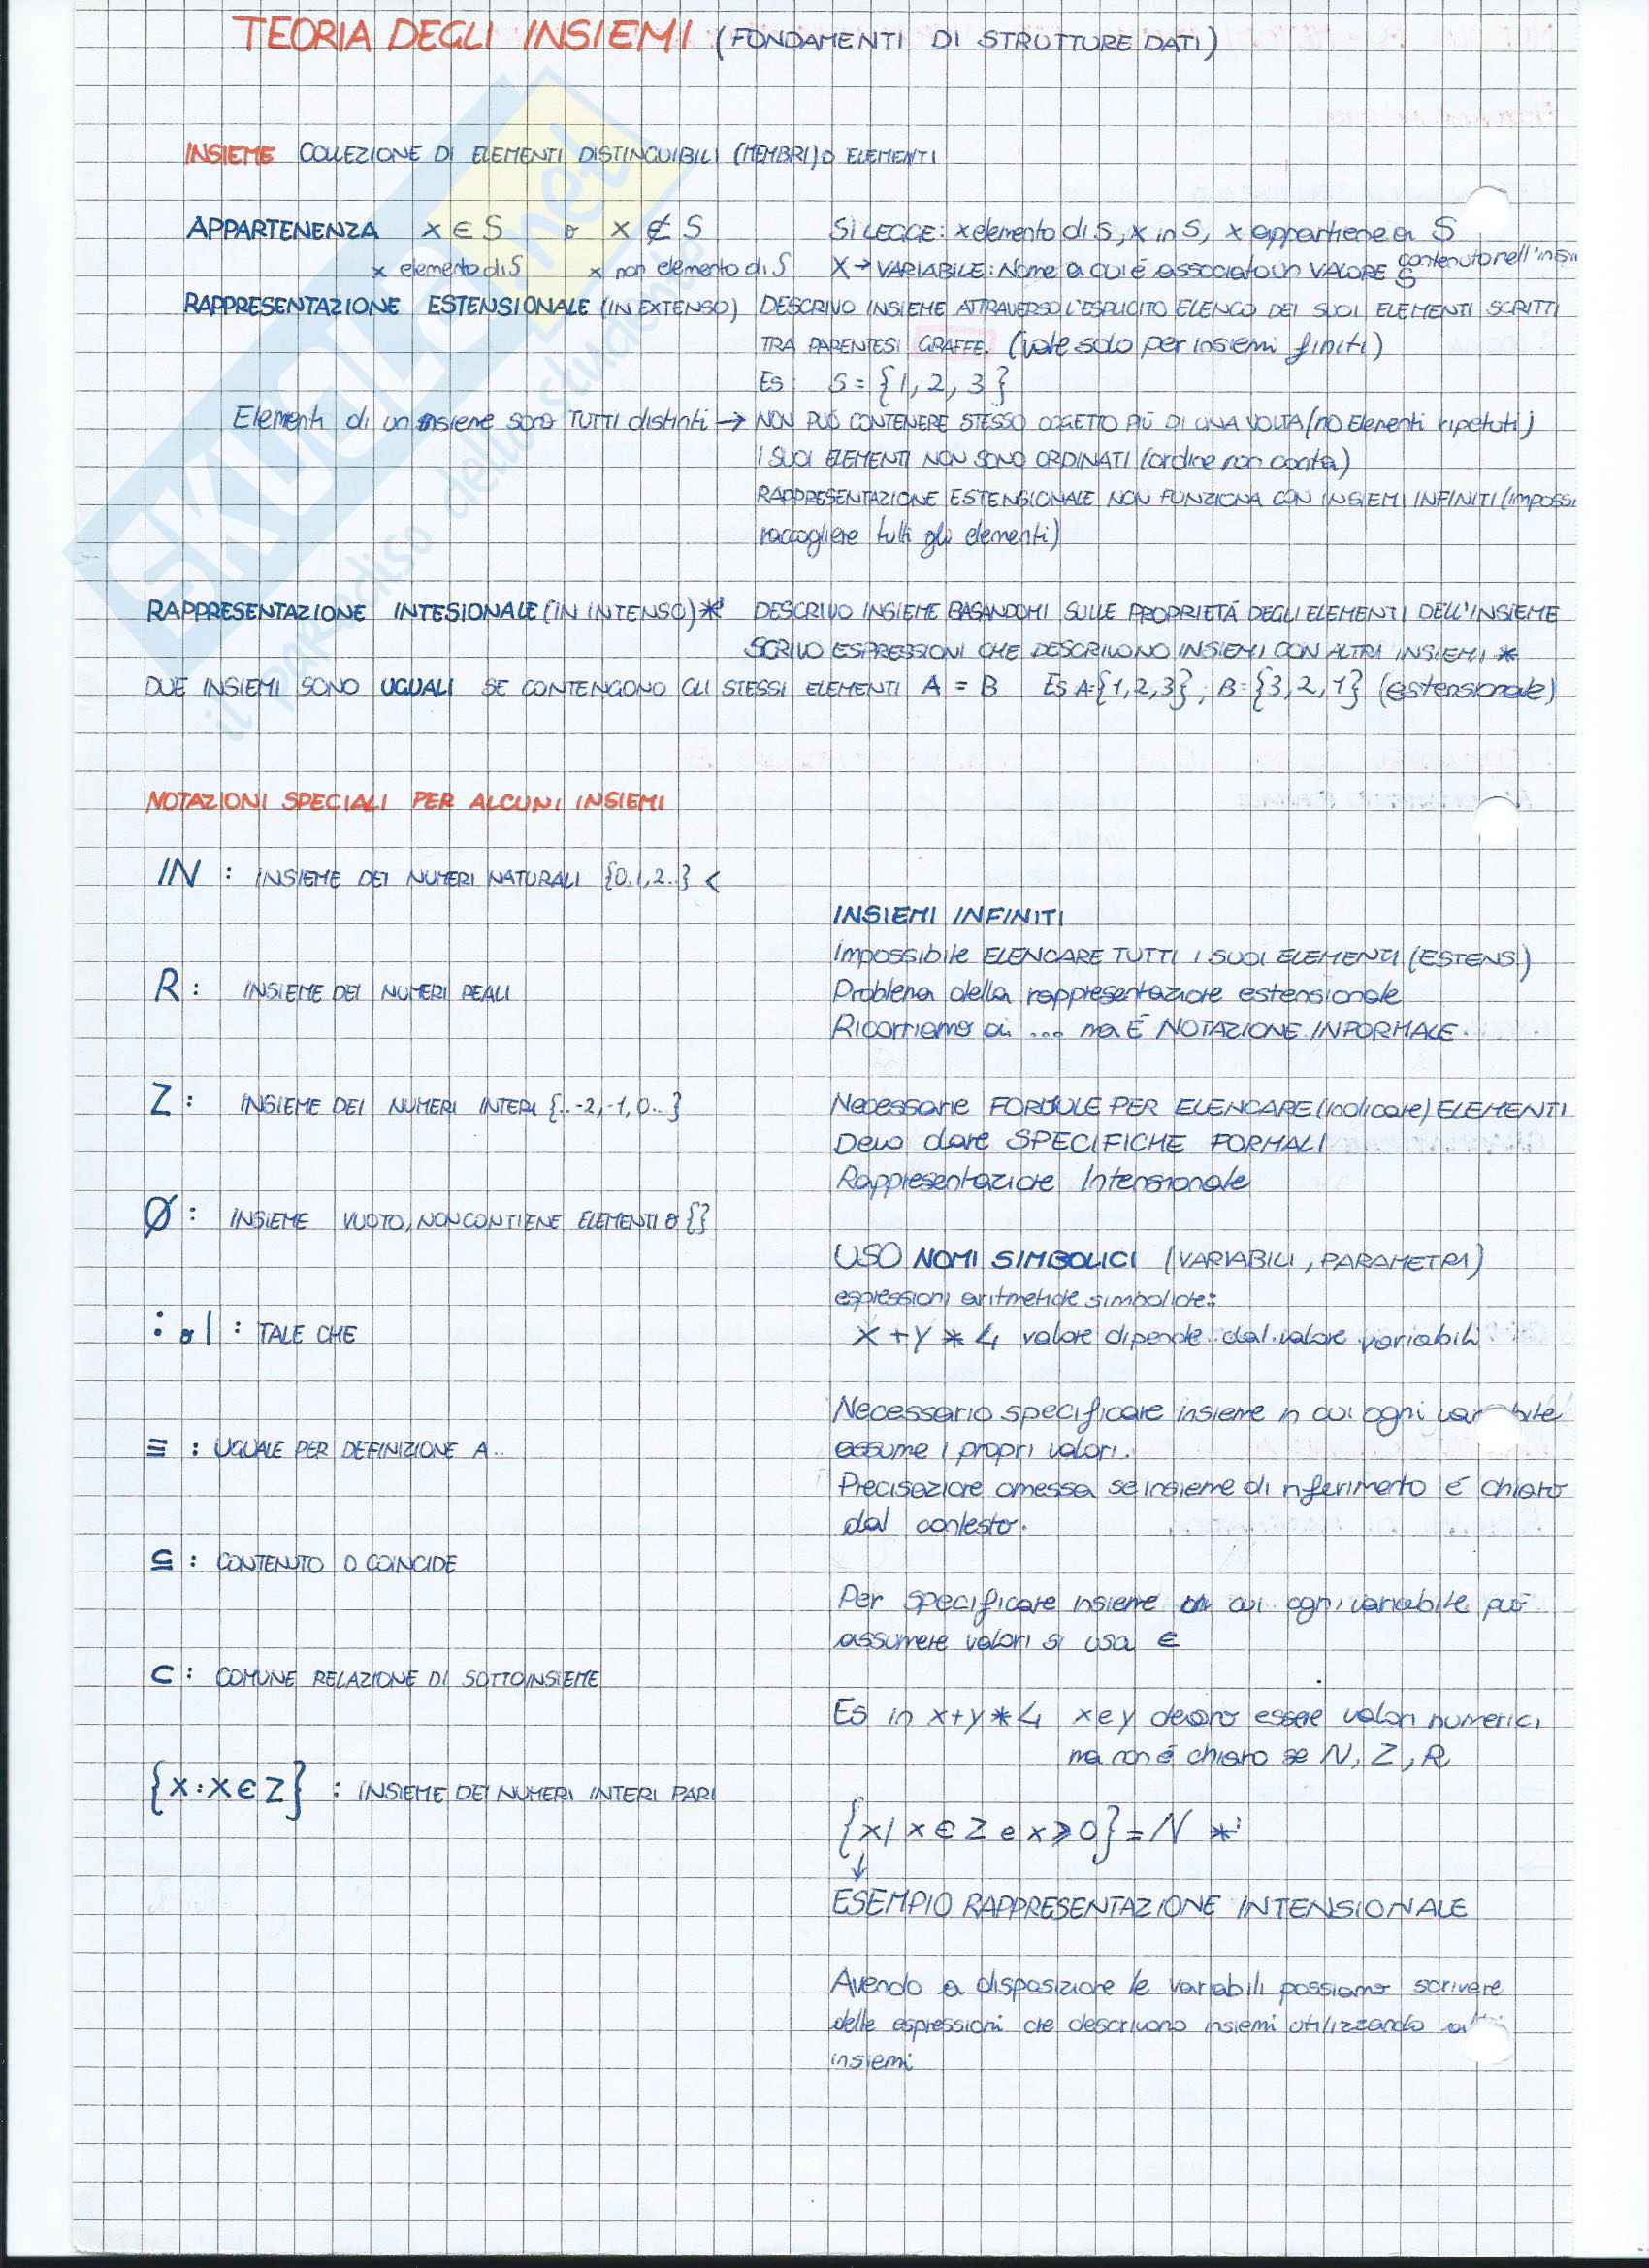 TEORIA DEGLI INSIEMI (FONDAMENTI DI STRUTTURE DATI)
INSIEME COLLEZIONE DI ELEMENTI DISTINGUIBILI (MEMBRI) O ELEMENTI
APPARTENENZA x ∈ S o x ∉ S SI LEGGE: x elemento di S, x in S, x appartiene a S
x elemento di S x non elemento di S X → VARIABILE: Nome a cui è associato un VALORE contenuto nell'insi
S
RAPPRESENTAZIONE ESTENSIONALE (IN EXTENSO) DESCRIVO INSIEME ATTRAVERSO L'ESPLICITO ELENCO DEI SUOI ELEMENTI SCRITTI
TRA PARENTESI GRAFFE. (vale solo per insiemi finiti)
Es: S = {1, 2, 3}
Elementi di un insieme sono TUTTI distinti → NON PUÒ CONTENERE STESSO OGGETTO PIÙ DI UNA VOLTA (no Elementi ripetuti)
I SUOI ELEMENTI NON SONO ORDINATI (ordine non conta)
RAPPRESENTAZIONE ESTENSIONALE NON FUNZIONA CON INSIEMI INFINITI (imposs
raccogliere tutti gli elementi)
RAPPRESENTAZIONE INTESIONALE (IN INTENSO) *' DESCRIVO INSIEME BASANDOMI SULLE PROPRIETÁ DEGLI ELEMENTI DELL'INSIEME
SCRIVO ESPRESSIONI CHE DESCRIVONO INSIEMI CON ALTRI INSIEMI *
DUE INSIEMI SONO UGUALI SE CONTENGONO GLI STESSI ELEMENTI A = B Es A={1,2,3}; B={3,2,1} (estensionale)
NOTAZIONI SPECIALI PER ALCUNI INSIEMI
IN : INSIEME DEI NUMERI NATURALI {0,1,2..} <
INSIEMI INFINITI
Impossibile ELENCARE TUTTI I SUOI ELEMENTI (ESTENS.)
R : INSIEME DEI NUMERI REALI
Problema della rappresentazione estensionale
Ricorriamo ai ... ma É NOTAZIONE INFORMALE.
Z : INSIEME DEI NUMERI INTERI {..-2,-1,0..}
Necessarie FORMULE PER ELENCARE (indicare) ELEMENTI
Devo dare SPECIFICHE FORMALI
Rappresentazione Intensionale
Ø : INSIEME VUOTO, NON CONTIENE ELEMENTI o {}
USO NOMI SIMBOLICI (VARIABILI, PARAMETRI)
espressioni aritmetiche simboliche:
: o | : TALE CHE
X + Y * 4 valore dipende dal valore variabili
Necessario specificare insieme in cui ogni variabile
≡ : UGUALE PER DEFINIZIONE A..
assume i propri valori.
Precisazione omessa se insieme di riferimento é chiaro
dal contesto.
⊆ : CONTENUTO O COINCIDE
Per specificare insieme in cui ogni variabile può
assumere valori si usa ∈
⊂ : COMUNE RELAZIONE DI SOTTOINSIEME
Es in x+y*4 x e y devono essere valori numerici
ma non é chiaro se N, Z, R
{X : X ∈ Z} : INSIEME DEI NUMERI INTERI PARI
{x | x ∈ Z e x ≥ 0} = N *'
↓
ESEMPIO RAPPRESENTAZIONE INTENSIONALE
Avendo a disposizione le variabili possiamo scrivere
delle espressioni che descrivono insiemi utilizzando altri
insiemi
SKUOLA.net
il paradiso dello studente